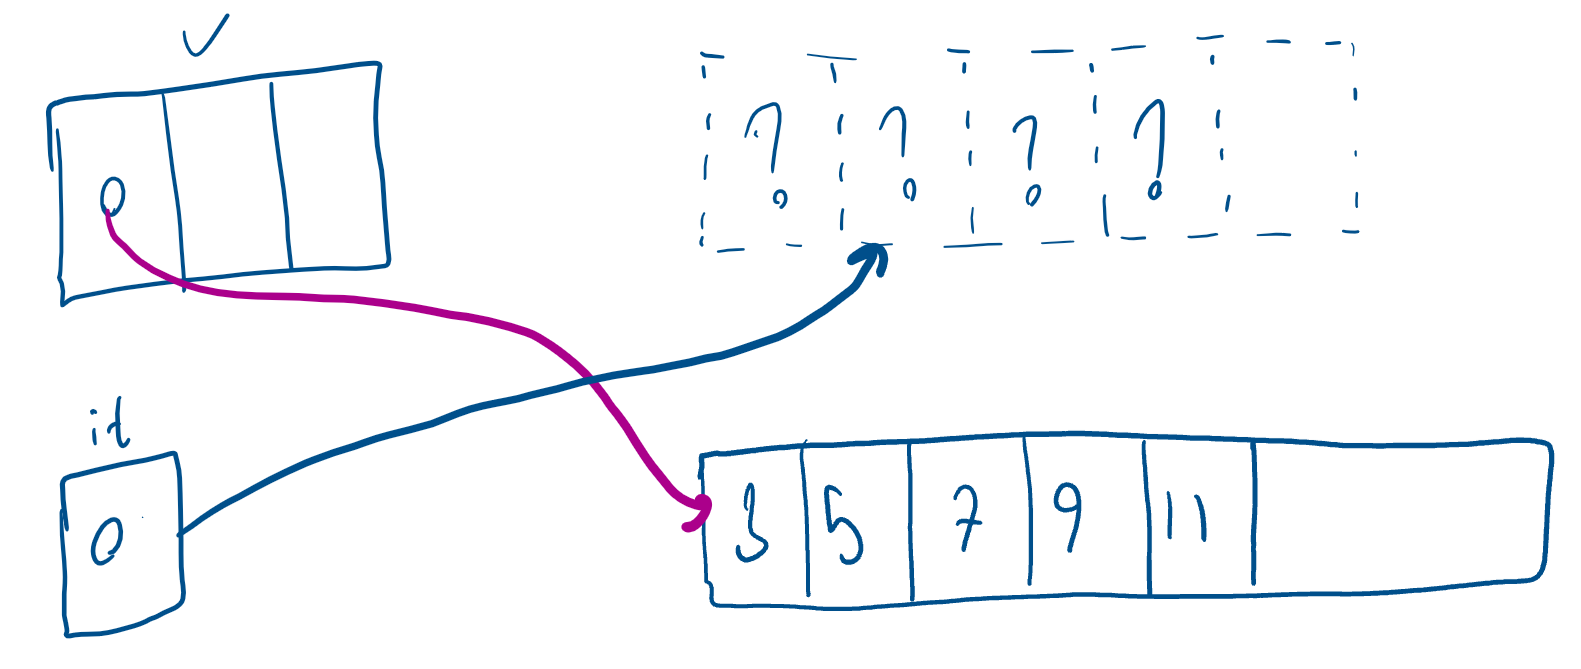 v
0
? ? ? ?
it
0
3 5 7 9 11